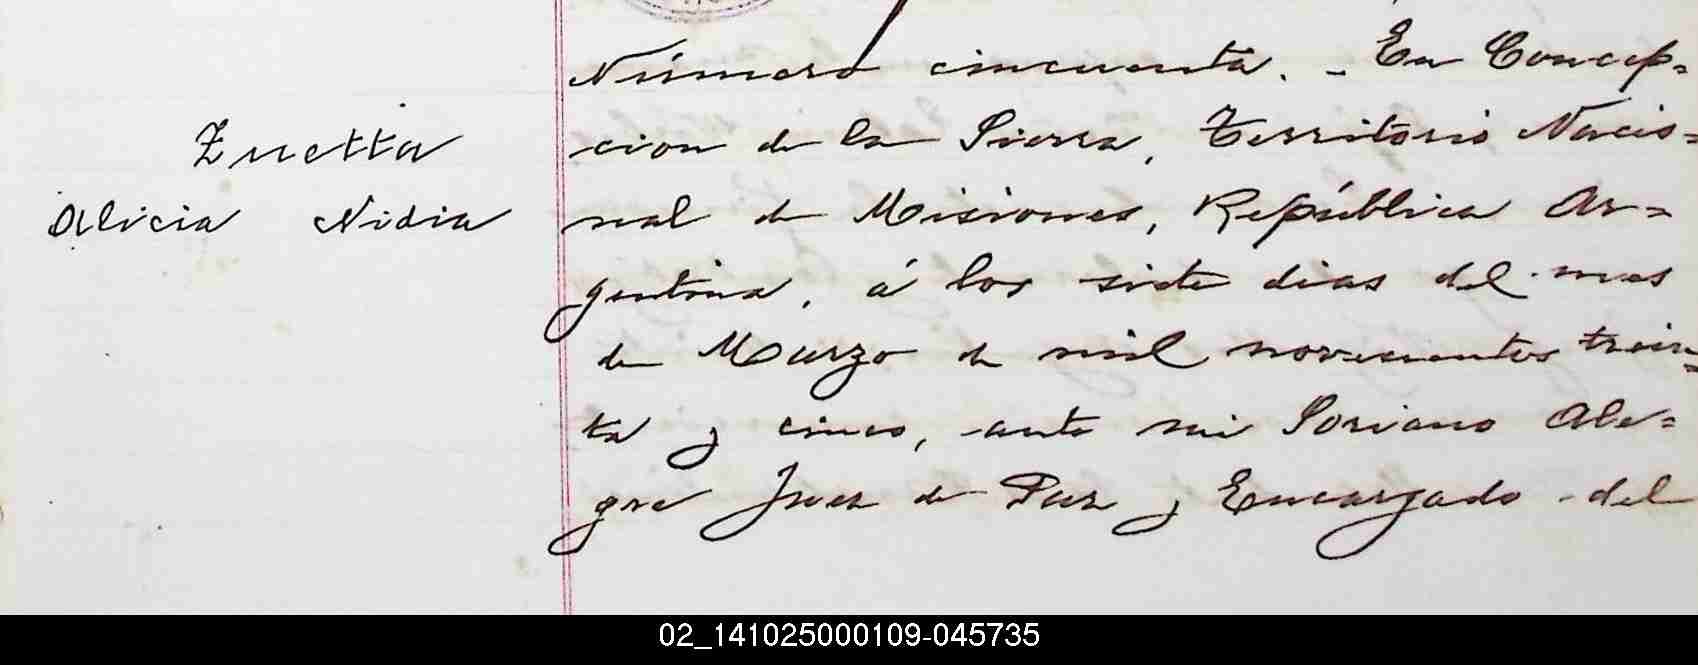 Zuetta
Alicia Nidia
Número cincuenta. - En Concep=
cion de la Sierra, Territorio Nacio=
nal de Misiones, República Ar=
gentina, á los siete dias del mes
de Marzo de mil novecientos trein=
ta y cinco, ante mi Soriano Ale=
gre Juez de Paz y Encargado del
02_141025000109-045735